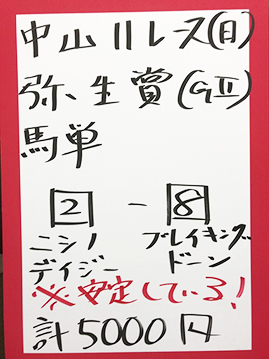 中山11レース(日)
弥生賞(GⅡ)
馬単
2-8
ニシノ ブレイキング
デイジー ドーン
※安定している!
計5000円